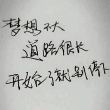 梦想不大
道路很长
开始了就别停下